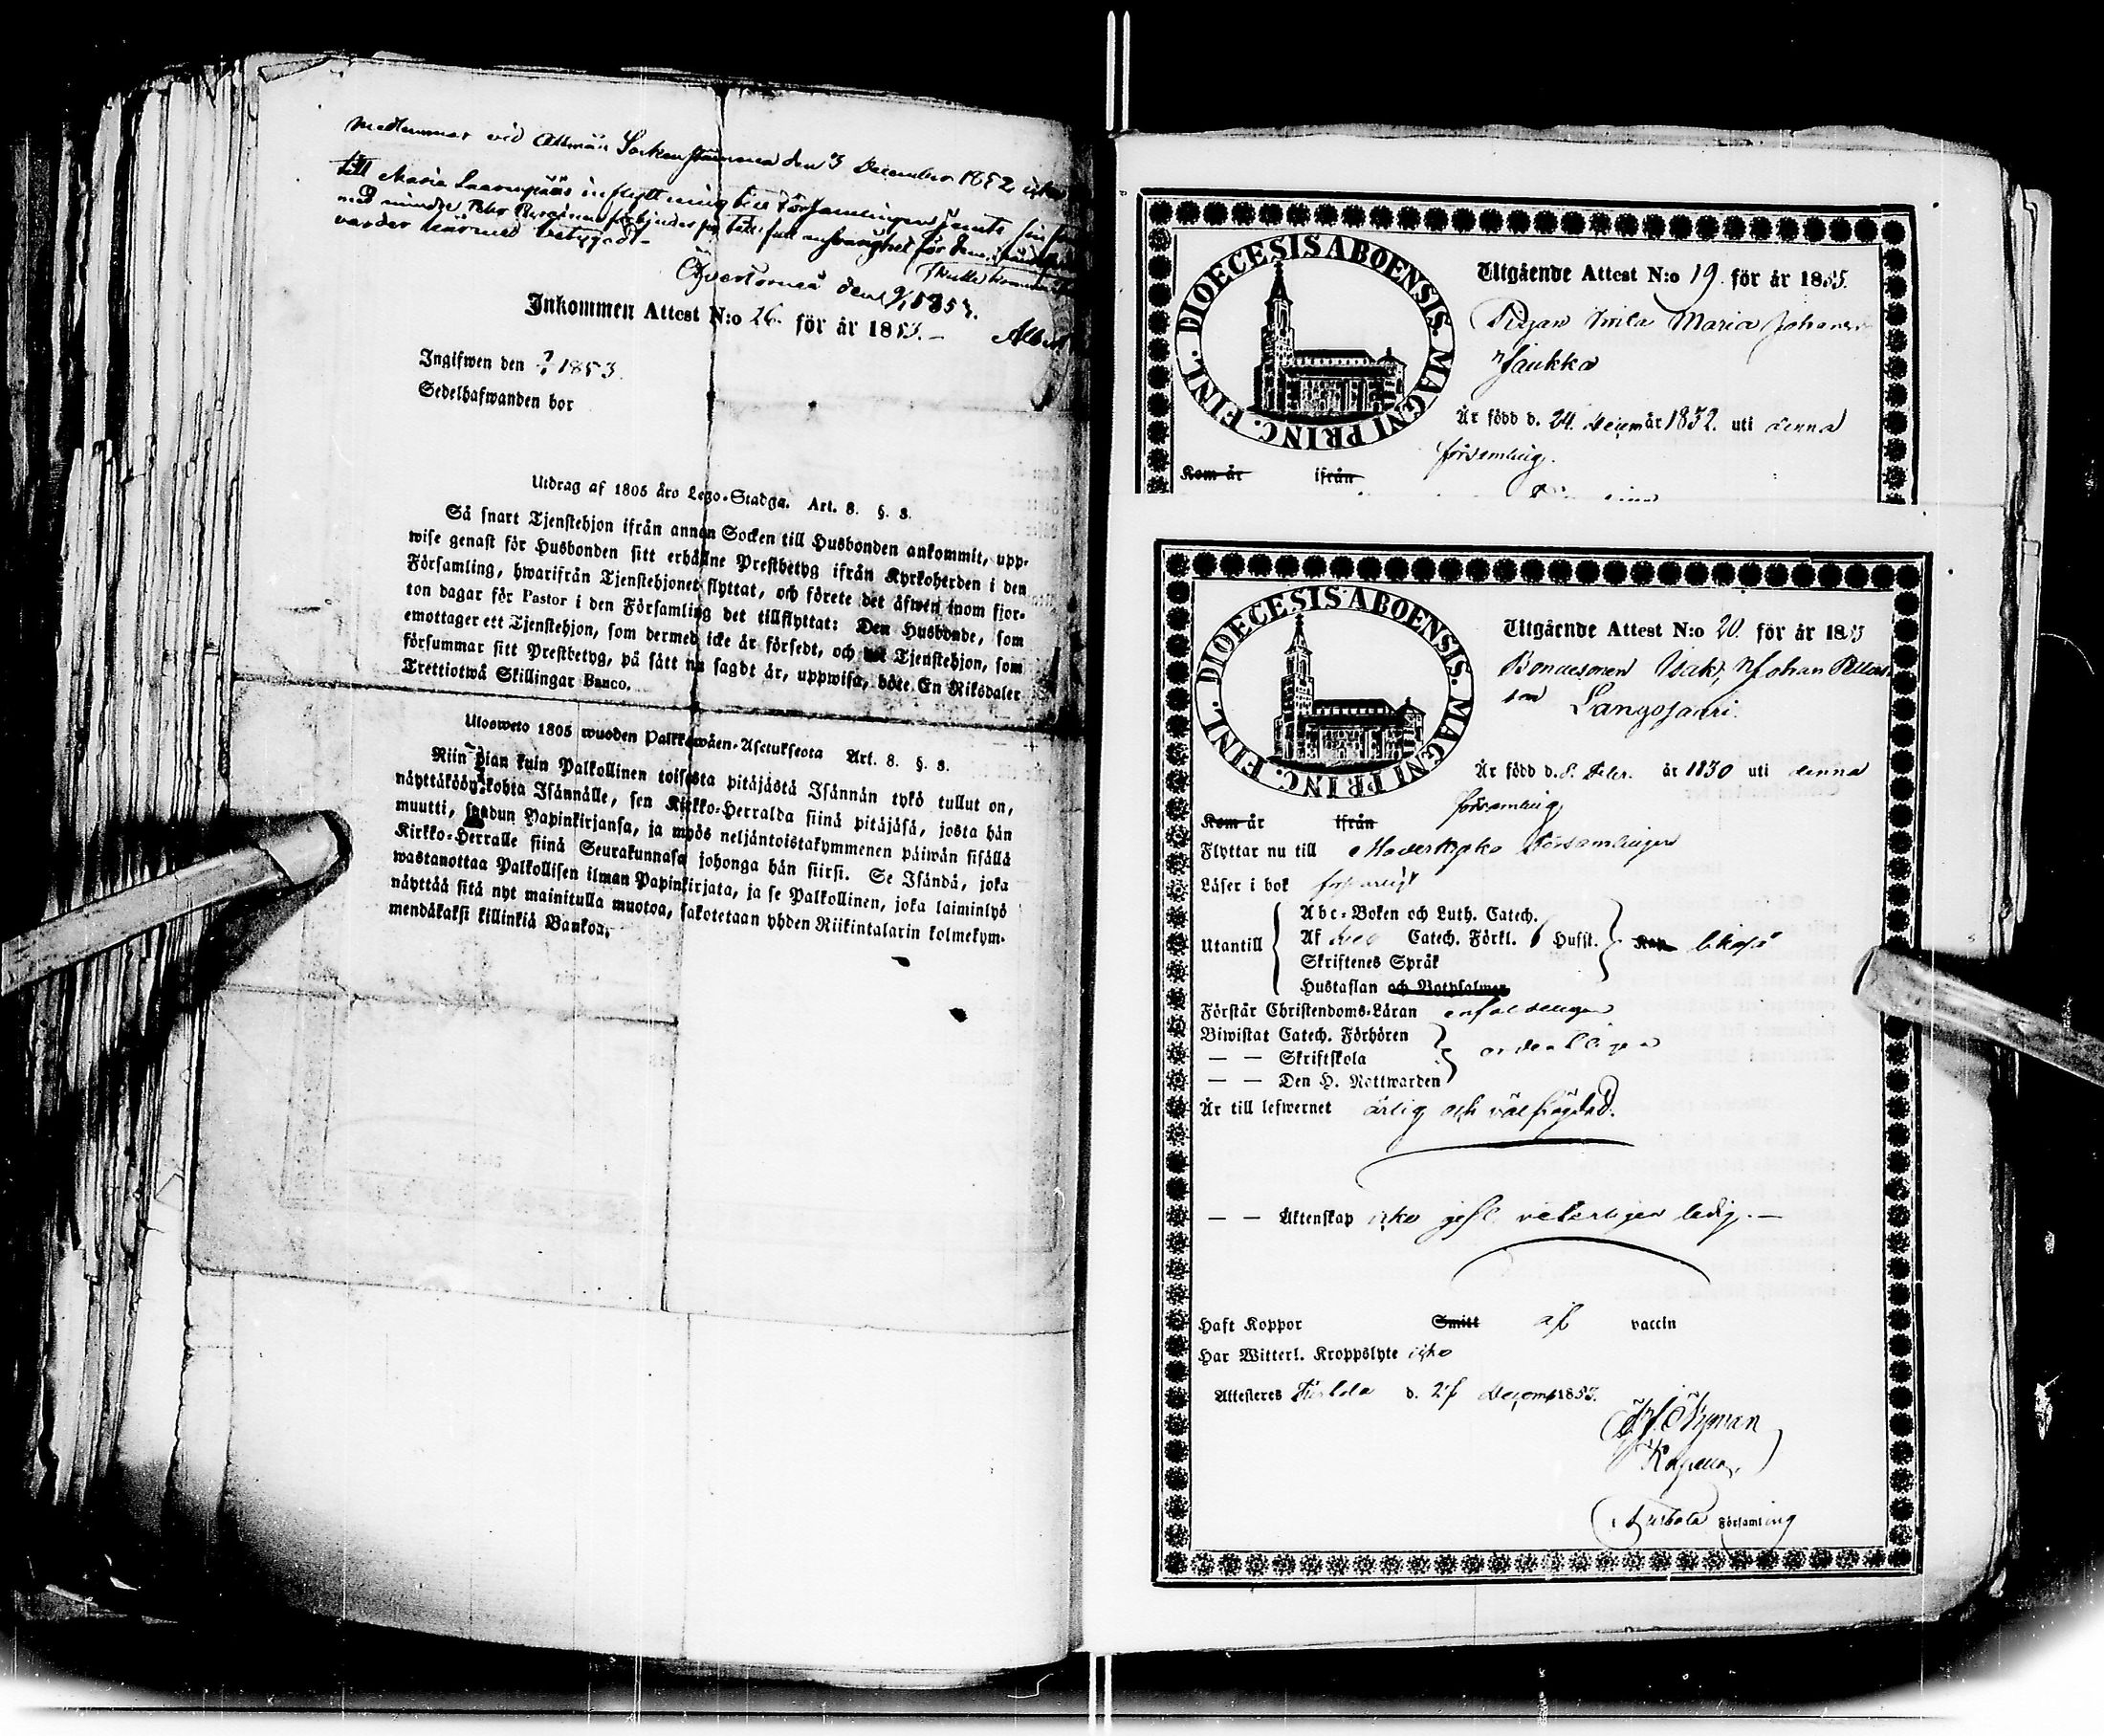 medlemmar vid Sockenstämma den 3 December 1852 icke
till Maria inflyttning till Församlingen jemte sin
med mindre Petter förbinder sig
varder härmed betygadt.
Öfvertorneå den 9/1 1853.
Inkommen Attest N:o 26. för år 1853.
Ingifwen den ? 1853.
Sedelhafwanden bor
Utdrag af 1805 års Lego-Stadga. Art. 8. §. 8.
Så snart Tjenstehjon ifrån annan Socken till Husbonden ankommit, upp-
wise genast för Husbonden sitt erhållne Prestbetyg ifrån Kyrkoherden i den
Församling, hwarifrån Tjenstehjonet flyttat, och förete det äfwen inom fjor-
ton dagar för Pastor i den Församling det tillflyttat: Den Husbonde, som
emottager ett Tjenstehjon, som dermed icke är försedt, och Tjenstehjon, som
försummar sitt Prestbetyg, på sätt nu sagdt är, uppwisa, böte En Riksdaler
Trettiotwå Skillingar Banco.
Ulosweto 1805 wuoden Palkkawäen-Asetuksesta Art. 8. §. 8.
Niin pian kuin Palkollinen toisesta pitäjästä Isännän tykö tullut on,
näyttäköön kohta Isännälle, sen Kirkko-Herralda siinä pitäjäsä, josta hän
muutti, saadun Papinkirjansa, ja myös neljäntoistakymmenen päiwän sisällä
Kirkko-Herralle siinä Seurakunnasa johonga hän siirsi. Se Isändä, joka
wastanottaa Palkollisen ilman Papinkirjata, ja se Palkollinen, joka laiminlyö
näyttää sitä nyt mainitulla muotoa, sakotetaan yhden Riikintalarin kolmekym-
mendäkaksi killinkiä Bankoa.
DIOECESIS ABOENSIS. MAGNI PRINC. FINL.
Utgående Attest N:o 19. för år 1853.
Pigan Maria Johansdr
Haukka
Är född d. 24. Decem år 1832. uti denna
församling.
Kom år ifrån
DIOECESIS ABOENSIS. MAGNI PRINC. FINL.
Utgående Attest N:o 20. för år 1853
Bondesonen Isak Johan
son Langojärvi.
Är född d. 8. Febr. år 1830 uti denna
församling
Kom år ifrån
Flyttar nu till Moderkyrko Församlingen
Läser i bok försvarligt
Utantill
Abc-Boken och Luth. Catech.
Af Catech. Förkl. Husit. likaså
Skriftenes Språk
Hustaflan och Botpsalmer
Förstår Christendoms-Läran enfaldeligen
Biwistat Catech. Förhören
— — Skriftskola ordentligen
— — Den H. Nattwarden
Är till lefwernet ärlig och välfrägdad.
— — Äktenskap icke gift veterligen ledig. —
Haft Koppor Smitt af vaccin
Har Witterl. Kroppslyte icke
Attesteras Turtola d. 27 Decemb 1853.
Öhman
Turtola Församling